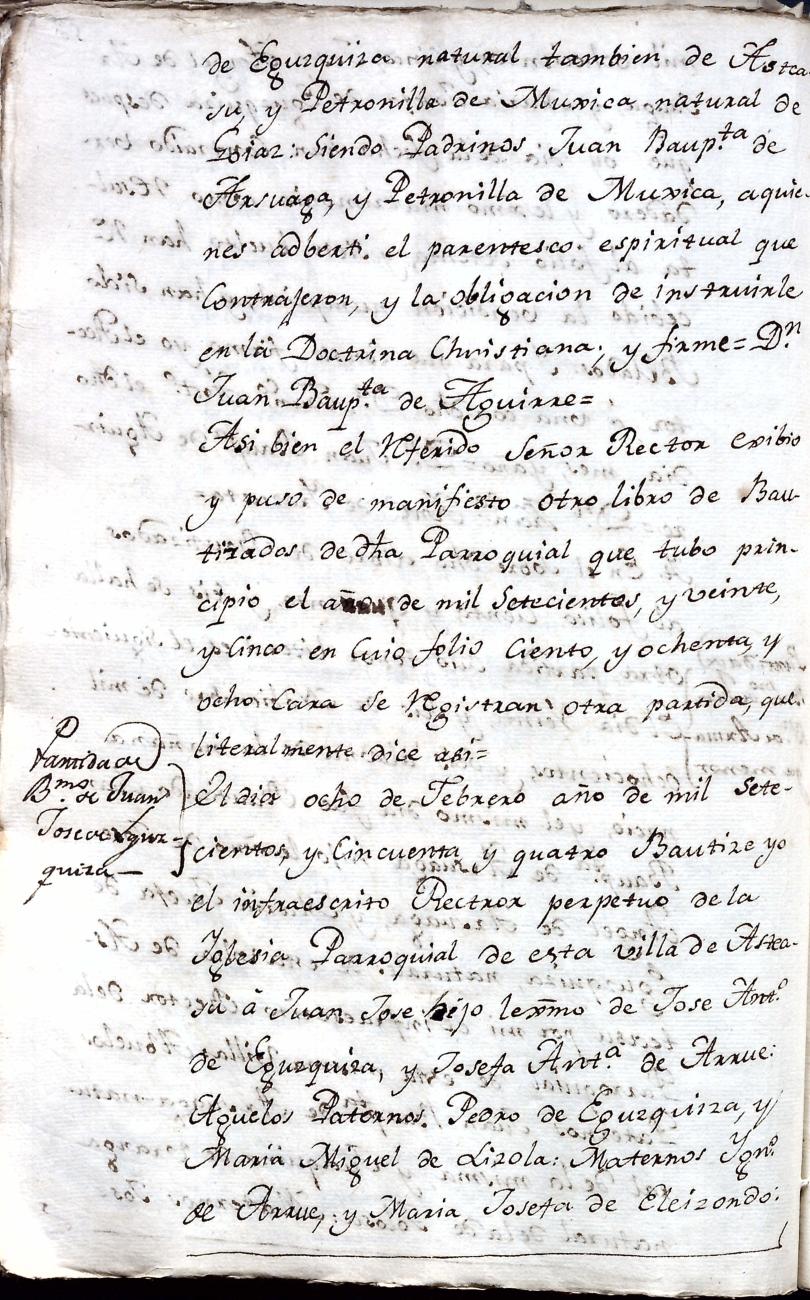 de Egurquiza natural tambien de Astea
su, y Petronilla de Muxica natural de
Goiaz: Siendo Padrinos Juan Baup.ta de
Arsuaga, y Petronilla de Muxica, a quie-
nes adberti el parentesco espiritual que
Contrajeron, y la obligacion de instruirle
en la Doctrina Christiana; y firme = D.n
Juan Baup.ta de Aguirre =
Asi bien el Referido Señor Rector exibio
y puso de manifiesto otro libro de Bau-
tizados de dha Parroquial que tubo prin-
cipio, el año de mil Setecientos, y veinte,
y Cinco en Cuio folio Ciento, y ochenta, y
ocho Cara Se Registran otra partida, que
literalmente dice asi =
Partida de
B.mo de Juan
Jose de Egur-
quiza
El dia ocho de Febrero año de mil Sete-
cientos, y Cincuenta y quatro Bautize yo
el infraescrito Rector perpetuo de la
Iglesia Parroquial de esta villa de Astea-
su â Juan Jose hijo lexmo de Jose Ant.o
de Egurquiza, y Josefa Ant.a de Arrue:
Aguelos Paternos Pedro de Egurquiza, y
Maria Miguel de Lizola: Maternos Ygn.o
de Arrue, y Maria Josefa de Eleizondo: